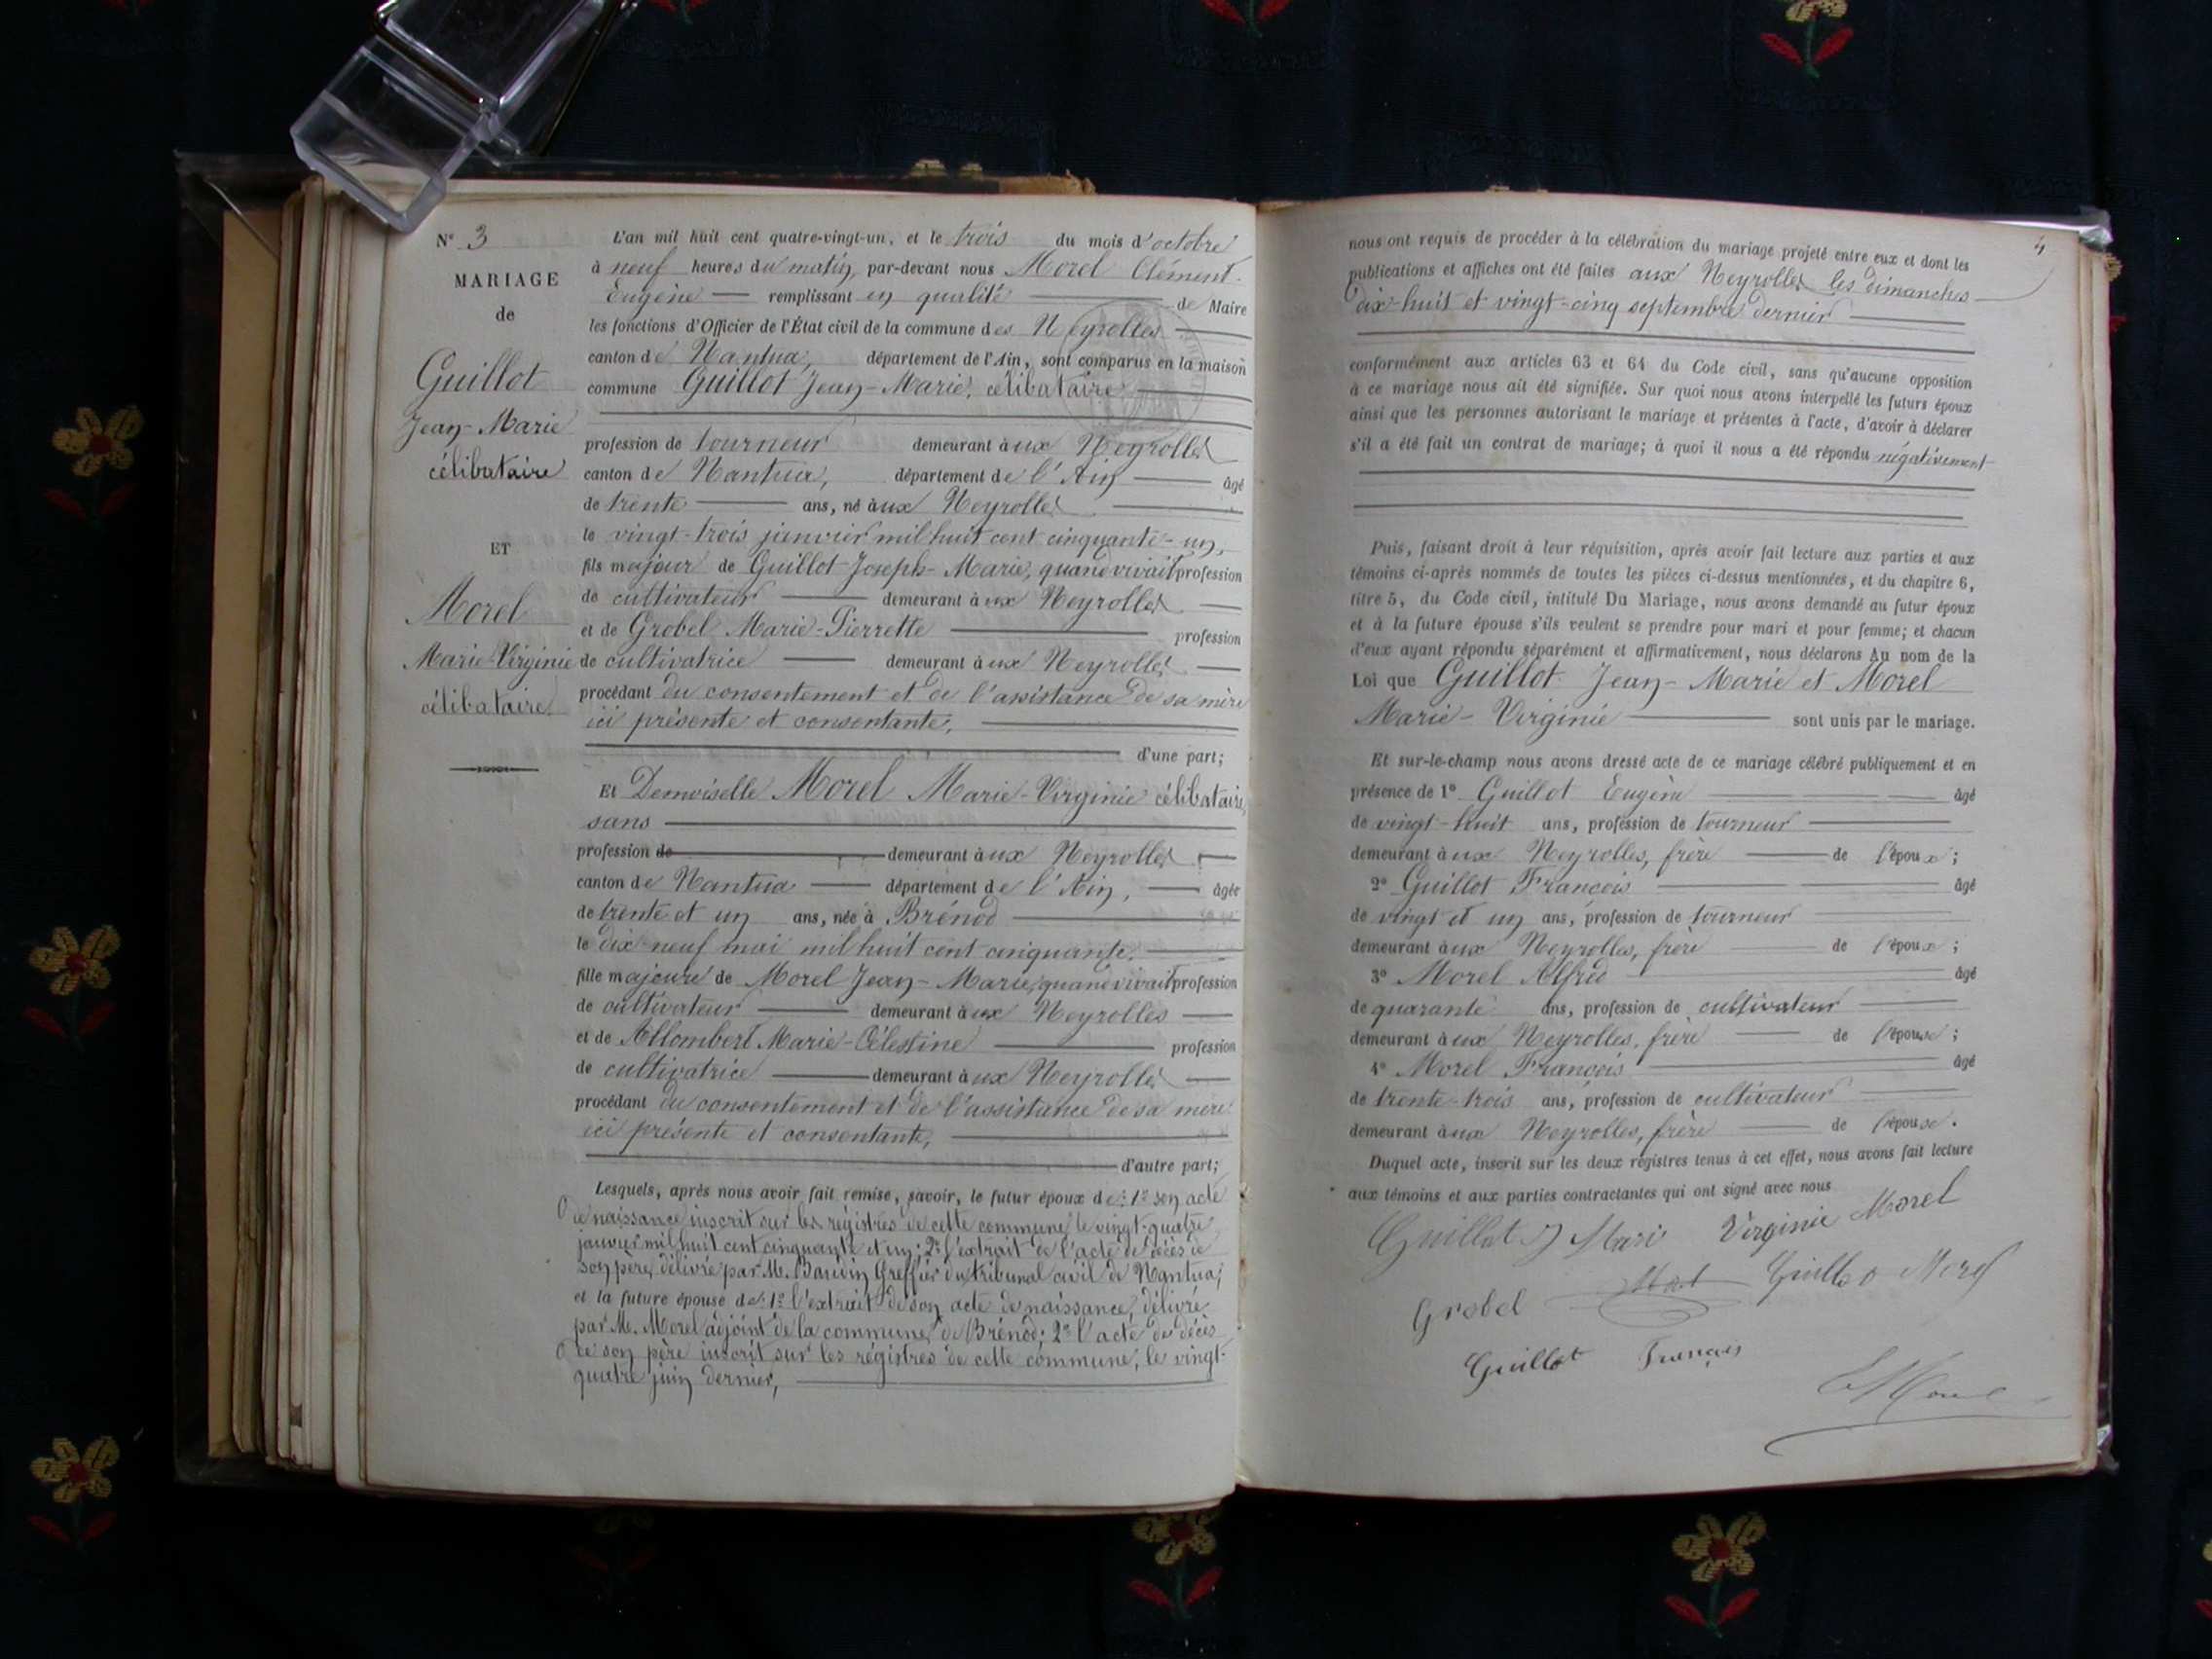 N° 3
MARIAGE
de
Guillot
Jean-Marie
célibataire
ET
Morel
Marie-Virginie
célibataire.
L'an mil huit cent quatre-vingt-un, et le trois du mois d'octobre
à neuf heures du matin, par-devant nous Morel Clément-
Eugène — remplissant en qualité — de Maire
les fonctions d'Officier de l'État civil de la commune des Neyrolles
canton de Nantua, département de l'Ain, sont comparus en la maison
commune Guillot Jean-Marie, célibataire
profession de tourneur demeurant aux Neyrolles
canton de Nantua, département de l'Ain — âgé
de trente — ans, né aux Neyrolles
le vingt-trois janvier mil huit cent cinquante-un,
fils majeur de Guillot Joseph-Marie, quand vivait profession
de cultivateur — demeurant aux Neyrolles —
et de Grobel Marie-Pierrette — profession
de cultivatrice — demeurant aux Neyrolles —
procédant du consentement et de l'assistance de sa mère
ici présente et consentante,
d'une part;
Et Demoiselle Morel Marie-Virginie célibataire,
sans
profession de demeurant aux Neyrolles
canton de Nantua — département de l'Ain, — âgée
de trente et un ans, née à Brénod
le dix-neuf mai mil huit cent cinquante.
fille majeure de Morel Jean-Marie, quand vivait profession
de cultivateur — demeurant aux Neyrolles —
et de Allombert Marie-Célestine — profession
de cultivatrice — demeurant aux Neyrolles —
procédant du consentement et de l'assistance de sa mère
ici présente et consentante,
d'autre part;
Lesquels, après nous avoir fait remise, savoir, le futur époux de: 1° son acte
de naissance inscrit sur les régistres de cette commune le vingt-quatre
janvier mil huit cent cinquante et un; 2° l'extrait de l'acte de décès de
son père, délivré par M. Baudin Greffier du tribunal civil de Nantua;
et la future épouse de: 1° l'extrait de son acte de naissance, délivré
par M. Morel adjoint de la commune de Brénod; 2° l'acte de décès
de son père inscrit sur les régistres de cette commune, le vingt-
quatre juin dernier,
4
nous ont requis de procéder à la célébration du mariage projeté entre eux et dont les
publications et affiches ont été faites aux Neyrolles les dimanches
dix-huit et vingt-cinq septembre dernier
conformément aux articles 63 et 64 du Code civil, sans qu'aucune opposition
à ce mariage nous ait été signifiée. Sur quoi nous avons interpellé les futurs époux
ainsi que les personnes autorisant le mariage et présentes à l'acte, d'avoir à déclarer
s'il a été fait un contrat de mariage; à quoi il nous a été répondu négativement
Puis, faisant droit à leur réquisition, après avoir fait lecture aux parties et aux
témoins ci-après nommés de toutes les pièces ci-dessus mentionnées, et du chapitre 6,
titre 5, du Code civil, intitulé Du Mariage, nous avons demandé au futur époux
et à la future épouse s'ils veulent se prendre pour mari et pour femme; et chacun
d'eux ayant répondu séparément et affirmativement, nous déclarons Au nom de la
Loi que Guillot Jean-Marie et Morel
Marie-Virginie — sont unis par le mariage.
Et sur-le-champ nous avons dressé acte de ce mariage célébré publiquement et en
présence de 1° Guillot Eugène — âgé
de vingt-huit ans, profession de tourneur
demeurant aux Neyrolles, frère — de l'époux;
2° Guillot François — âgé
de vingt et un ans, profession de tourneur
demeurant aux Neyrolles, frère — de l'époux;
3° Morel Alfred — âgé
de quarante ans, profession de cultivateur
demeurant aux Neyrolles, frère — de l'épouse;
4° Morel François — âgé
de trente-trois ans, profession de cultivateur
demeurant aux Neyrolles, frère — de l'épouse.
Duquel acte, inscrit sur les deux régistres tenus à cet effet, nous avons fait lecture
aux témoins et aux parties contractantes qui ont signé avec nous
Guillot J Mari Virginie Morel
Grobel Guillo Morel
Guillot François